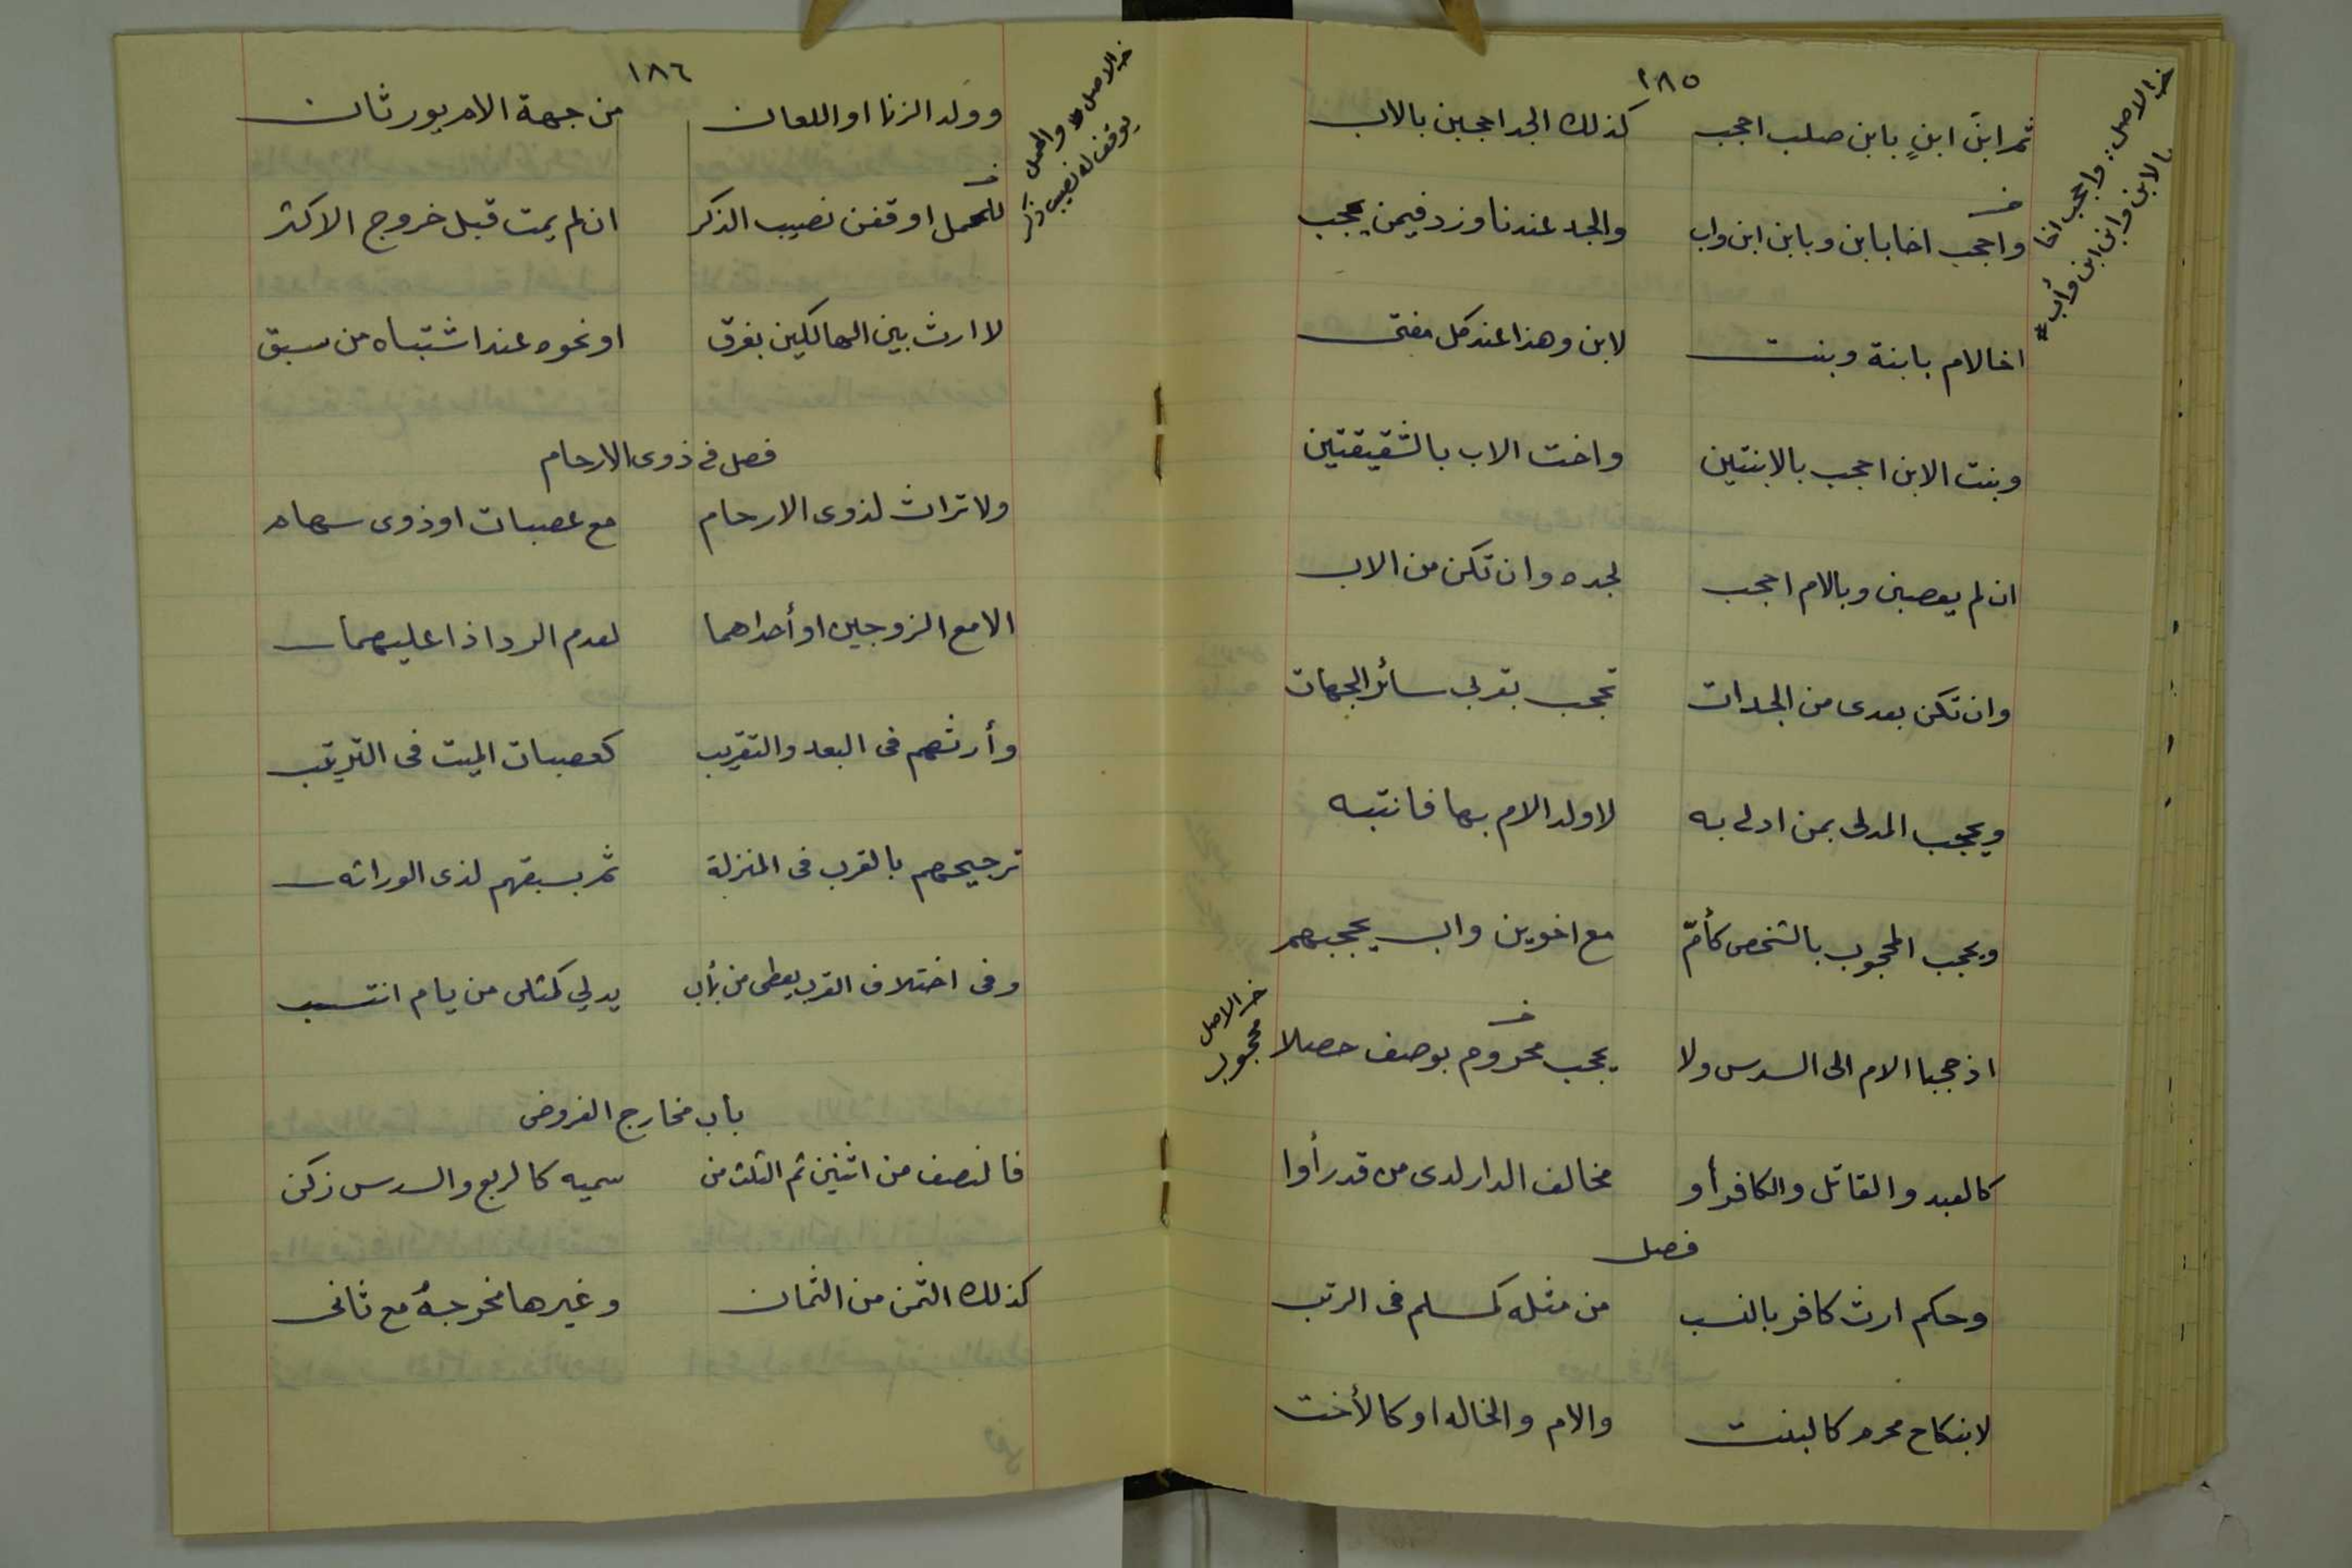 ١٨٥
ثم ابنَ ابنٍ بابن صلب احجب كذلك الجد احجبن بالاب
واحجب اخا بابن وبابن ابن واب والجد عندنا وزد فيمن يحجب
اخا لام بابنة وبنت لابن وهذا عند كل مفتى
وبنت الابن احجب بالابنتين واخت الاب بالشقيقتين
ان لم يعصبن وبالام احجب لجده وان تكن من الاب
وان تكن بعدى من الجدات تحجب بقربى سائر الجهات
ويحجب المدلى بمن ادلى به لا ولد الام بها فانتبه
ويحجب المحجوب بالشخص كأمّ مع اخوين واب يحجبهم
اذ حجبا الام الى السدس ولا يحجب محروم بوصف حصلا
كالعبد والقاتل والكافر أو مخالف الدار لدى من قد رأوا
فصل
وحكم ارث كافر بالنسب من مثله كمسلم فى الرتب
لا بنكاح محرم كالبنت والام والخاله او كالأخت
خ الاصل: واحجب اخا
بالابن وابن ابن وأب #
خ الاصل
محجوب
١٨٦
وولد الزنا او اللعان من جهة الام يورثان
للحمل اوقفن نصيب الذكر ان لم يمت قبل خروج الاكثر
لا ارث بين الهالكين بغرق او نحوه عند اشتباه من سبق
فصل فى ذوى الارحام
ولا تراث لذوى الارحام مع عصبات او ذوى سهام
الا مع الزوجين او أحداهما لعدم الرد اذا عليهما
وأرثهم فى البعد والتقريب كعصبات الميت فى الترتيب
ترجيحهم بالقرب فى المنزلة ثم بسبقهم لذى الوراثه
وفى اختلاف القرب يعطى من بأب يدلي كمثلى من بام انتسب
باب مخارج الفروض
فالنصف من اثنين ثم الثلث من سميه كالربع والسدس زكن
كذلك الثمن من الثمان وغيرها مخرجهُ مع ثانى
خ الاصل والحمل
يوقف له نصيب ذكر